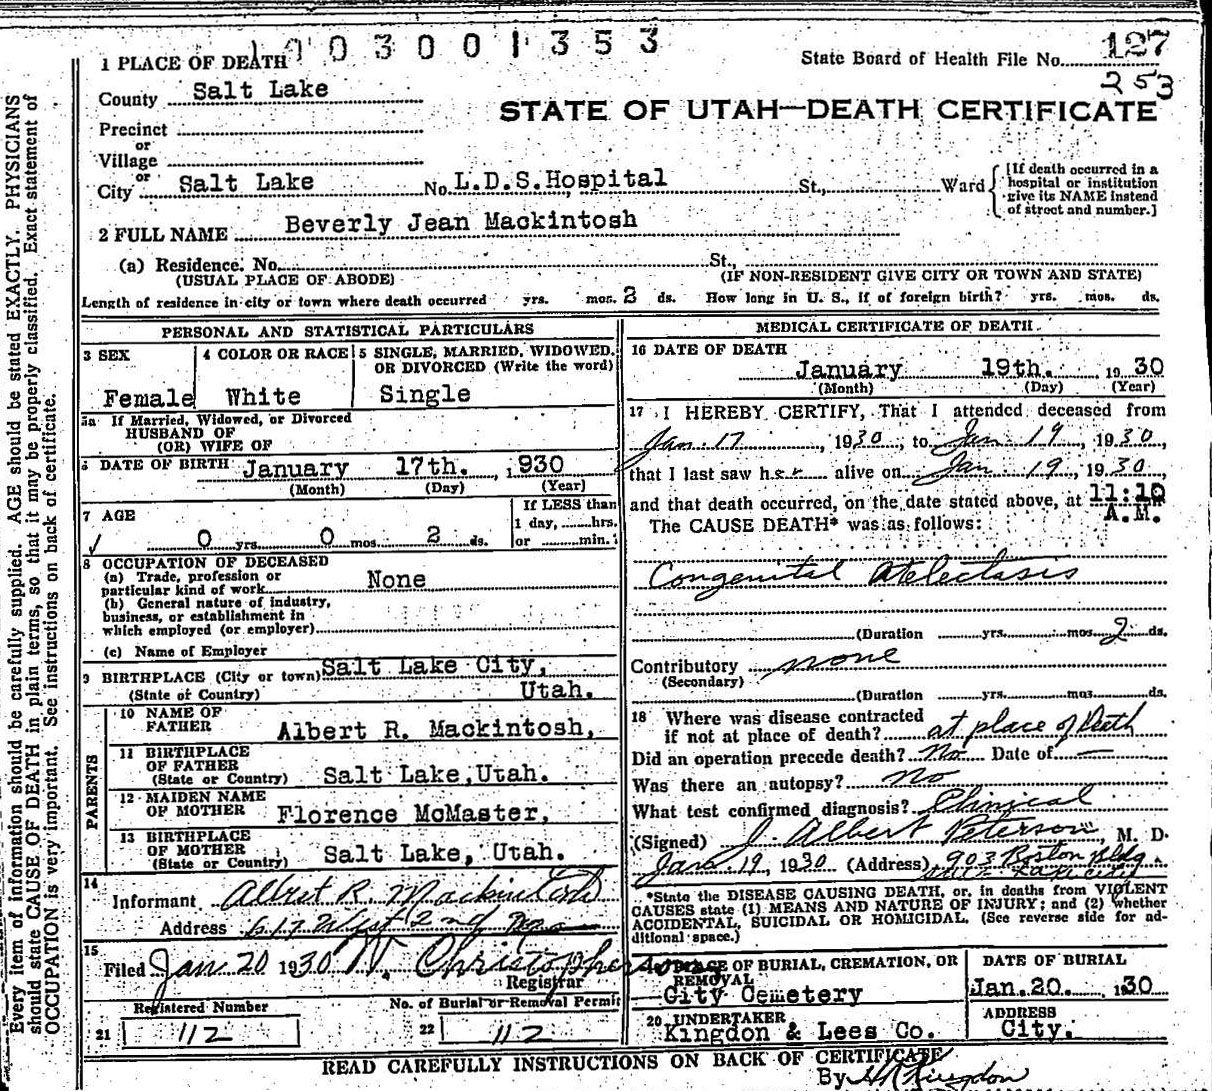 1003001353
State Board of Health File No. 127
253
1 PLACE OF DEATH
County Salt Lake
STATE OF UTAH—DEATH CERTIFICATE
Precinct
or
Village
or
City Salt Lake No. L.D.S.Hospital St., Ward
[If death occurred in a hospital or institution give its NAME instead of street and number.]
2 FULL NAME Beverly Jean Mackintosh
(a) Residence. No. St.,
(USUAL PLACE OF ABODE) (IF NON-RESIDENT GIVE CITY OR TOWN AND STATE)
Length of residence in city or town where death occurred yrs. mos. 2 ds. How long in U. S., if of foreign birth? yrs. mos. ds.
PERSONAL AND STATISTICAL PARTICULARS
3 SEX Female
4 COLOR OR RACE White
5 SINGLE, MARRIED, WIDOWED, OR DIVORCED (Write the word) Single
5a If Married, Widowed, or Divorced
HUSBAND OF
(OR) WIFE OF
6 DATE OF BIRTH January 17th. 1930
(Month) (Day) (Year)
7 AGE
0 yrs. 0 mos. 2 ds.
If LESS than
1 day, hrs.
or min.
8 OCCUPATION OF DECEASED
(a) Trade, profession or
particular kind of work None
(b) General nature of industry,
business, or establishment in
which employed (or employer)
(c) Name of Employer
9 BIRTHPLACE (City or town) Salt Lake City,
(State or Country) Utah.
PARENTS
10 NAME OF
FATHER Albert R. Mackintosh,
11 BIRTHPLACE
OF FATHER
(State or Country) Salt Lake,Utah.
12 MAIDEN NAME
OF MOTHER Florence McMaster,
13 BIRTHPLACE
OF MOTHER
(State or Country) Salt Lake, Utah.
14
Informant Albert R. Mackintosh
Address 617 West 2nd No
15
Filed Jan 20 1930 W. Christopherson
Registrar
Registered Number No. of Burial or Removal Permit
21 112 22 112
MEDICAL CERTIFICATE OF DEATH
16 DATE OF DEATH
January 19th. 1930
(Month) (Day) (Year)
17 I HEREBY CERTIFY, That I attended deceased from
Jan. 17, 1930, to Jan 19, 1930,
that I last saw her alive on Jan 19, 1930,
and that death occurred, on the date stated above, at 11:10
A.M.
The CAUSE DEATH* was as follows:
Congenital Atelectasis
(Duration yrs. mos. 2 ds.
Contributory none
(Secondary)
(Duration yrs. mos. ds.
18 Where was disease contracted
if not at place of death? at place of Death
Did an operation precede death? No Date of —
Was there an autopsy? No
What test confirmed diagnosis? Clinical
(Signed) J. Albert Peterson, M. D.
Jan. 19, 1930 (Address) 903 Boston Bldg.
Salt Lake City
*State the DISEASE CAUSING DEATH, or, in deaths from VIOLENT
CAUSES state (1) MEANS AND NATURE OF INJURY; and (2) whether
ACCIDENTAL, SUICIDAL OR HOMICIDAL. (See reverse side for ad-
ditional space.)
PLACE OF BURIAL, CREMATION, OR
REMOVAL
City Cemetery
DATE OF BURIAL
Jan.20. 1930
20 UNDERTAKER
Kingdon & Lees Co.
ADDRESS
City.
READ CAREFULLY INSTRUCTIONS ON BACK OF CERTIFICATE
By Kingdon
Every item of information should be carefully supplied. AGE should be stated EXACTLY. PHYSICIANS
should state CAUSE OF DEATH in plain terms, so that it may be properly classified. Exact statement of
OCCUPATION is very important. See instructions on back of certificate.